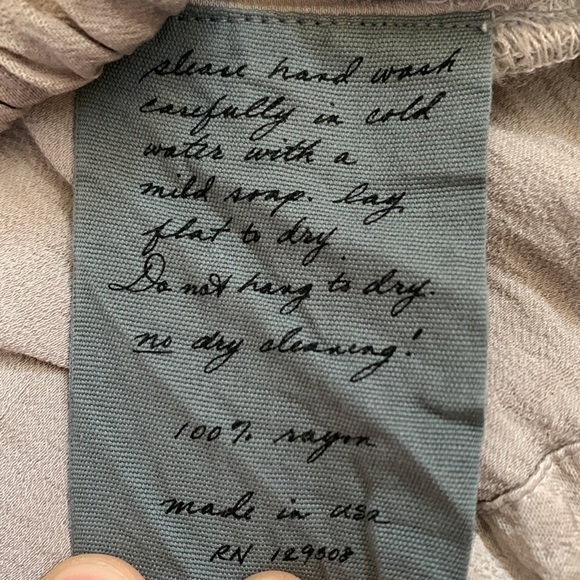 please hand wash
carefully in cold
water with a
mild soap. lay
flat to dry.
Do not hang to dry.
no dry cleaning!
100% rayon
made in usa
RN 129808